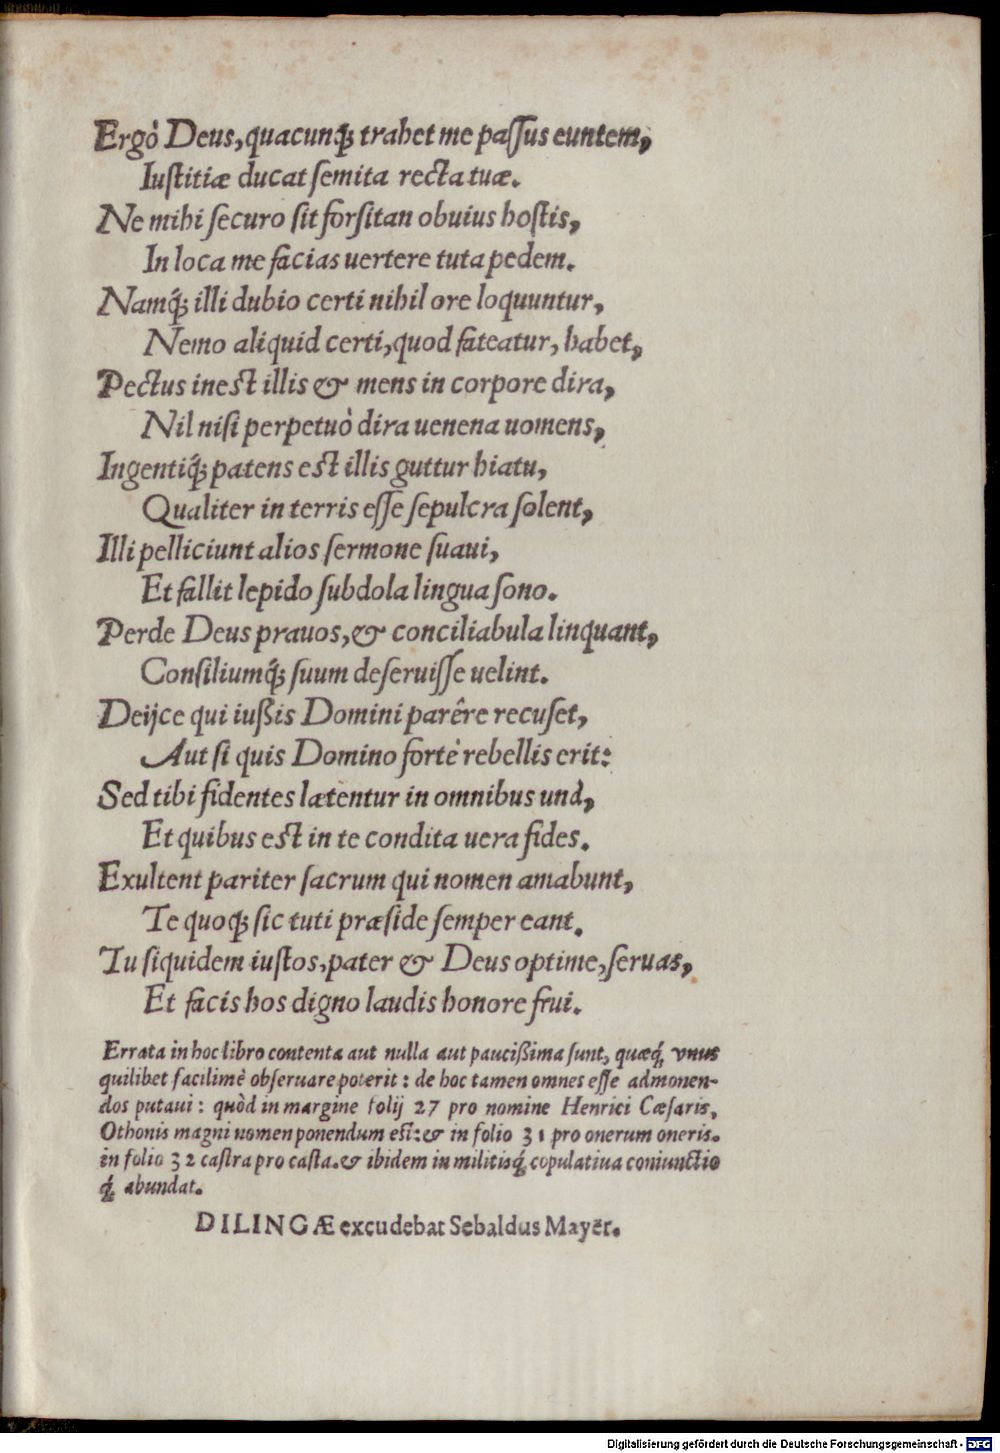 Ergò Deus, quacunq; trahet me paſſus euntem,
Iuſtitiæ ducat ſemita recta tuæ.
Ne mihi ſecuro ſit forſitan obuius hoſtis,
In loca me facias uertere tuta pedem.
Namq́; illi dubio certi nihil ore loquuntur,
Nemo aliquid certi, quod fateatur, habet,
Pectus ineſt illis & mens in corpore dira,
Nil niſi perpetuò dira uenena uomens,
Ingentiq́; patens eſt illis guttur hiatu,
Qualiter in terris eſſe ſepulcra ſolent,
Illi pelliciunt alios ſermone ſuaui,
Et fallit lepido ſubdola lingua ſono.
Perde Deus prauos, & conciliabula linquant,
Conſiliumq́; ſuum deſeruiſſe uelint.
Deijce qui iußis Domini parêre recuſet,
Aut ſi quis Domino fortè rebellis erit:
Sed tibi fidentes lætentur in omnibus unà,
Et quibus eſt in te condita uera fides.
Exultent pariter ſacrum qui nomen amabunt,
Te quoq; ſic tuti præſide ſemper eant.
Tu ſiquidem iuſtos, pater & Deus optime, ſeruas,
Et facis hos digno laudis honore frui.
Errata in hoc libro contenta aut nulla aut paucißima ſunt, quæq́; vnus
quilibet facilimè obſeruare poterit : de hoc tamen omnes eſſe admonen-
dos putaui : quòd in margine folij 27 pro nomine Henrici Cæſaris,
Othonis magni nomen ponendum eſt: & in folio 31 pro onerum oneris.
in folio 32 caſtra pro caſta. & ibidem in militisq́; copulatiua coniunctio
q́; abundat.
DILINGÆ excudebat Sebaldus Mayer.
Digitalisierung gefördert durch die Deutsche Forschungsgemeinschaft - DFG